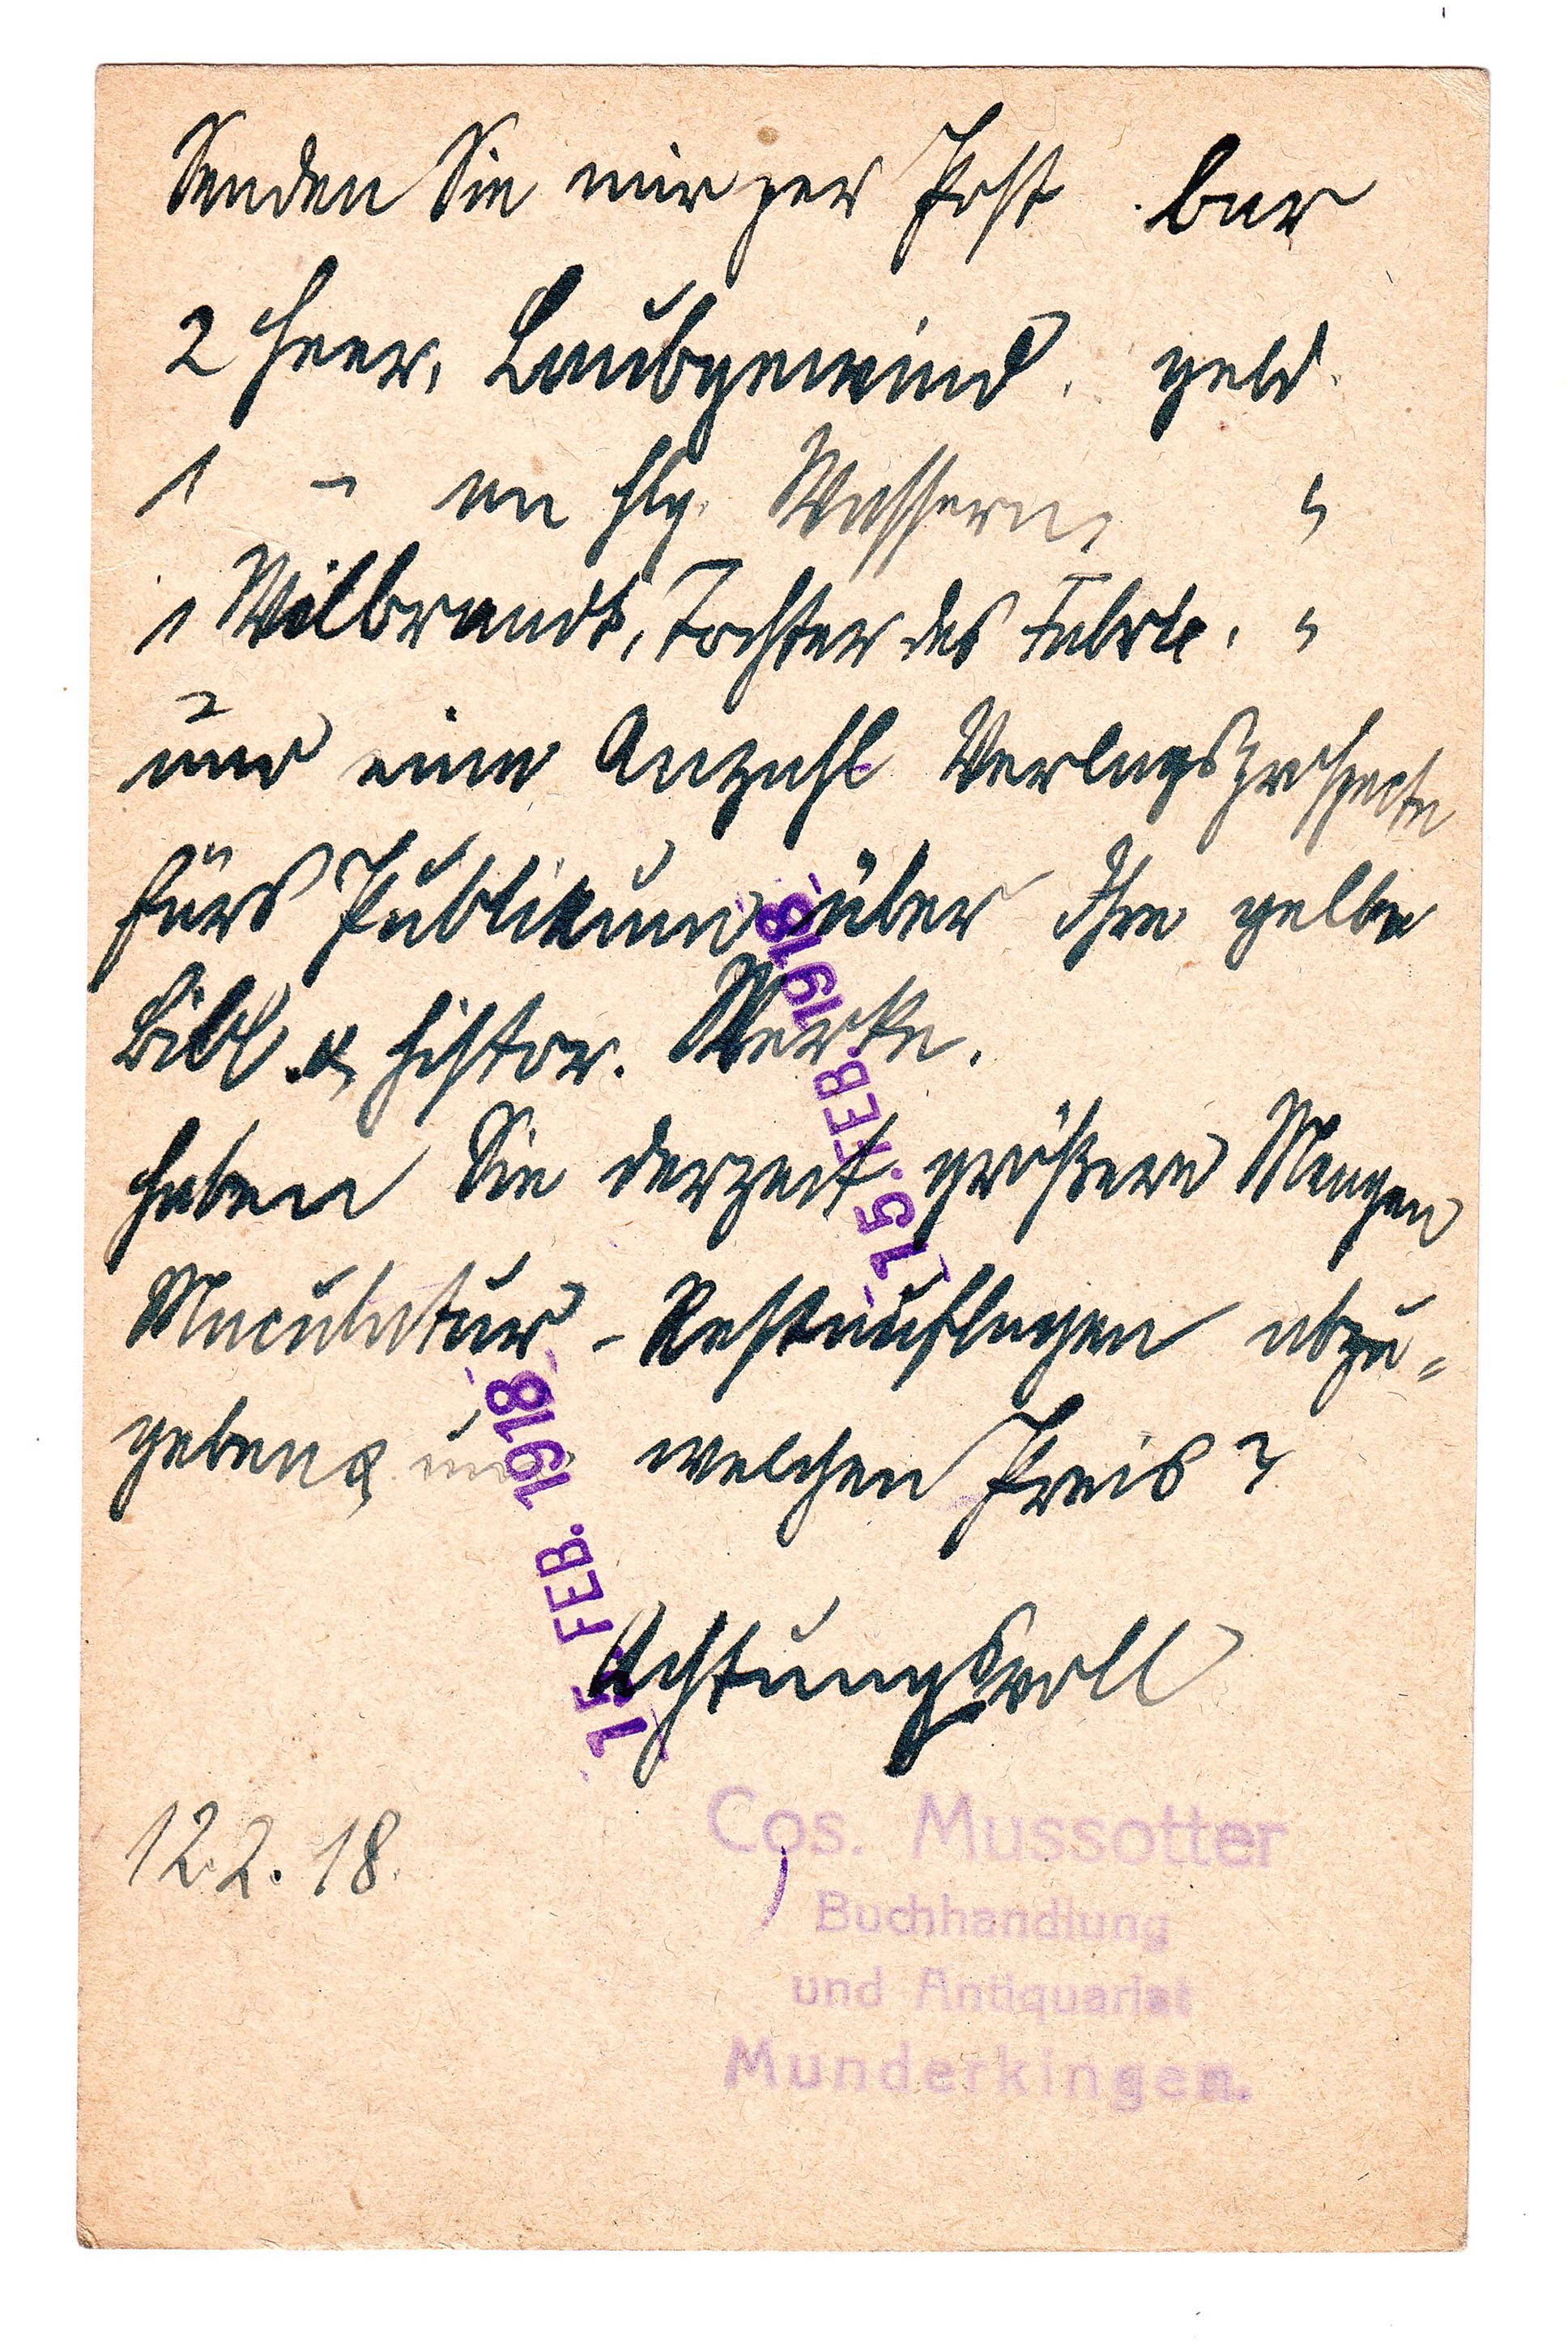 Senden Sie mir per Post bar
2 Heer, Laubgewind. geb.
1 " an hlg. Wassern, "
1 Wilbrandt, Tochter des Fabrik. "
und eine Anzahl Verlagsprospecte
fürs Publikum über Ihre gelbe
Bibl. & histor. Werke.
Haben Sie derzeit größere Mengen
Maculatur - Restauflagen abzu=
geben & um welchen Preis?
Achtungsvoll
12.2.18.
15. FEB. 1918
15. FEB. 1918
Cos. Mussotter
Buchhandlung
und Antiquariat
Munderkingen.